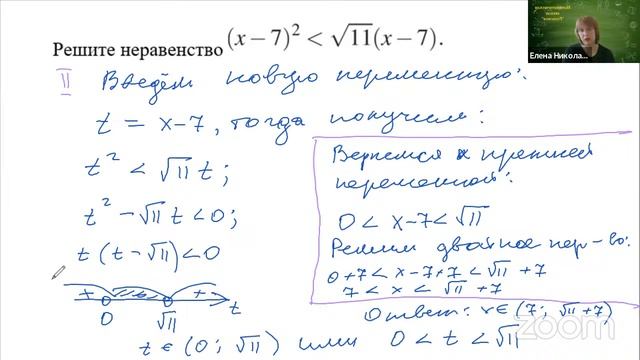 Решите неравенство (x − 7)² < √11(x − 7).
II Введём новую переменную:
t = x−7, тогда получим:
t² < √11 t;
t² − √11 t < 0;
t (t − √11) < 0
+ + t
0 √11
t ∈ (0; √11) или 0 < t < √11
Вернемся к прежней
переменной:
0 < x−7 < √11
Решим двойное нер-во:
0+7 < x−7+7 < √11 +7
7 < x < √11 +7
Ответ: x ∈ (7; √11 +7)
Елена Никола...
zoom